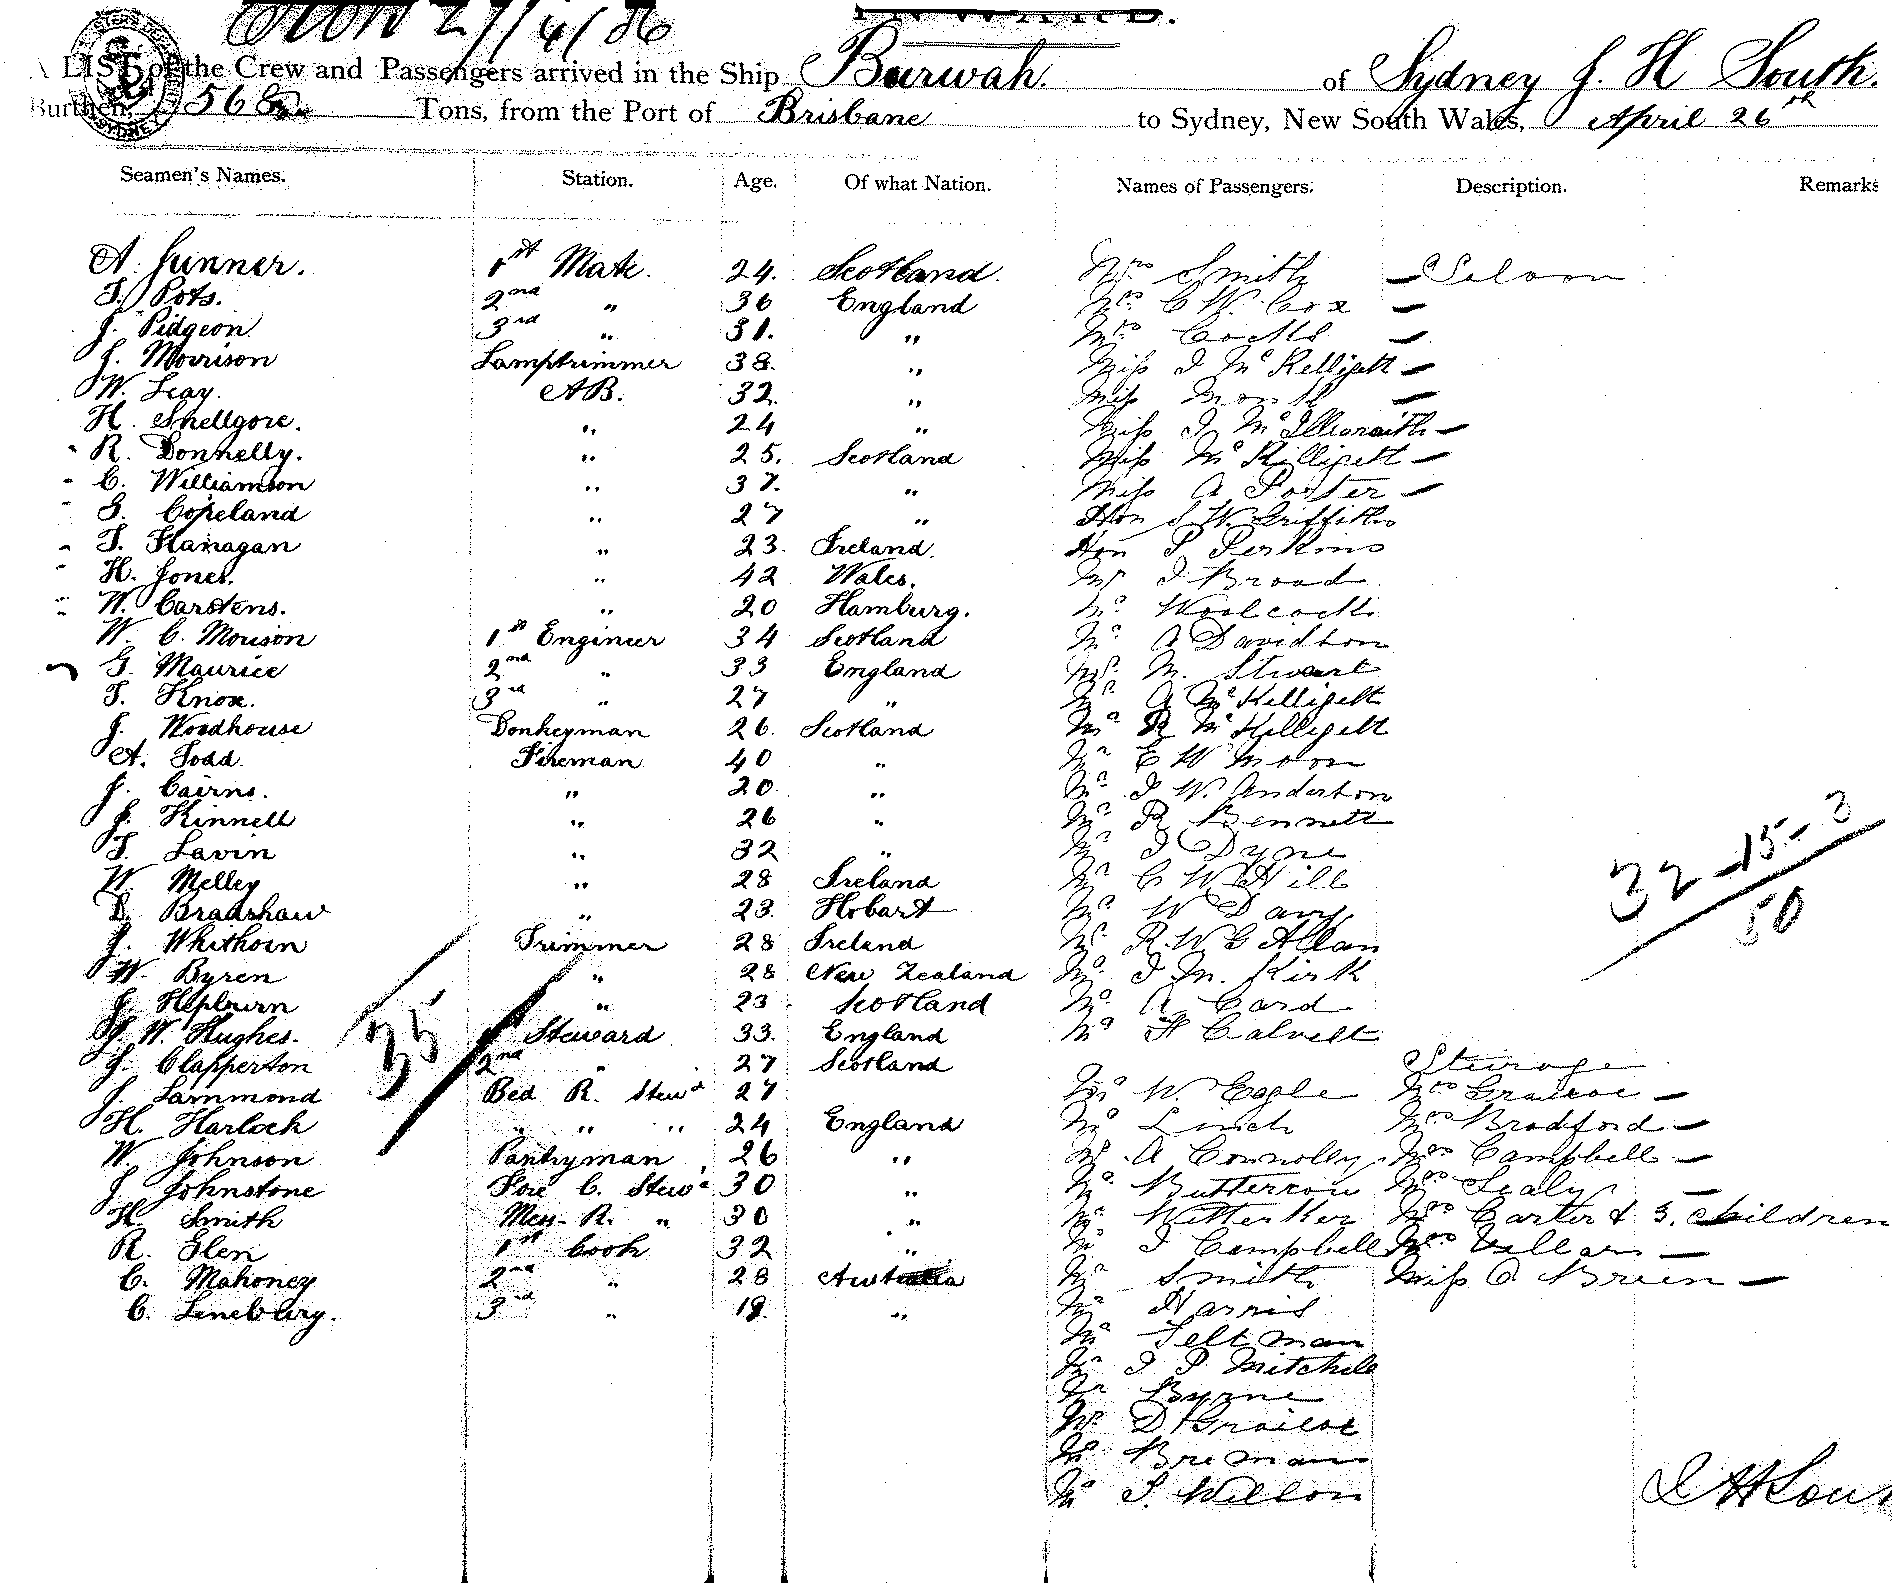 27/4/86
INWARD.
A LIST of the Crew and Passengers arrived in the Ship Burwah. of Sydney J. H South.
Burthen 568 Tons, from the Port of Brisbane to Sydney, New South Wales, April 26th
Seamen's Names. Station. Age. Of what Nation. Names of Passengers. Description. Remarks
A. Gunner. 1st Mate. 24. Scotland. Mrs Smith — Saloon
T. Pots. 2nd " 36 England Mrs C W. Cox —
J. Pidgeon 3rd " 31. " Mrs —
J. Morrison Lamptrimmer 38. " Miss J Mc Kelligett —
W. Leay. AB. 32. " Miss —
H. Shellgore. " 24 " Miss J McIllwraith —
R. Donnelly. " 25. Scotland Miss Mc Killigett —
C. Williamson " 37. " Miss A Porter —
G. Copeland " 27 " Hon S W. Griffiths
T. Flanagan " 23. Ireland. Hon P Perkins
H. Jones. " 42 Wales. Mr J Broad
W. Carstens. " 20 Hamburg. Mr Woolcock
W. C. Morison 1st Engineer 34 Scotland Mr A Davidson
G. Maurice 2nd " 33 England Mr M. Stuart
T. Knox. 3rd " 27 " Mr A Mc Kelligett
J. Woodhouse Donkeyman 26. Scotland Mr R Mc Kelligett
A. Todd Fireman 40 " Mr E W Moon
J. Cairns. " 20. " Mr J W. Anderson
J. Kinnell " 26 " Mr R Bennett
T. Lavin " 32 " Mr J Dyne
W. Melley " 28 Ireland Mr C W Hill
D. Bradshaw " 23. Hobart Mr W Davy
J. Whithorn Trimmer 28 Ireland Mr R. W C Allan
W. Byren " 28 New Zealand Mr J M. Kirk
J. Hepburn " 23 Scotland Mr A Card
J. W. Hughes. 1st Steward 33. England Mr H Calvett
J. Clapperton 2nd " 27 Scotland Steerage
J. Lammond Bed R. Stewd 27 Mr W. Eagle Mrs Graicoe —
H. Harloch " " " 24 England Mr Linch Mrs Bradford —
W. Johnson Pantryman 26 " Mr A Connolly Mrs Campbell —
J Johnstone Fore C. Stewd 30 " Mr Butterrow Mrs Sealy —
H. Smith Mess R. " 30 " Mr Witterker Mrs Carter & 3. children
R. Glen 1st Cook 32 " Mr J Campbell Mrs Vellar —
C. Mahoney 2nd " 28 Australia Mr Smith Miss O Brien —
C. Lineburg. 3rd " 18 " Mr Harris
Mr Feltman
Mr J P Mitchell
Mr Byrne
Mr D Graicoe
Mr Breman
Mr S. Willson
35
32-15-3
50
J H Sou